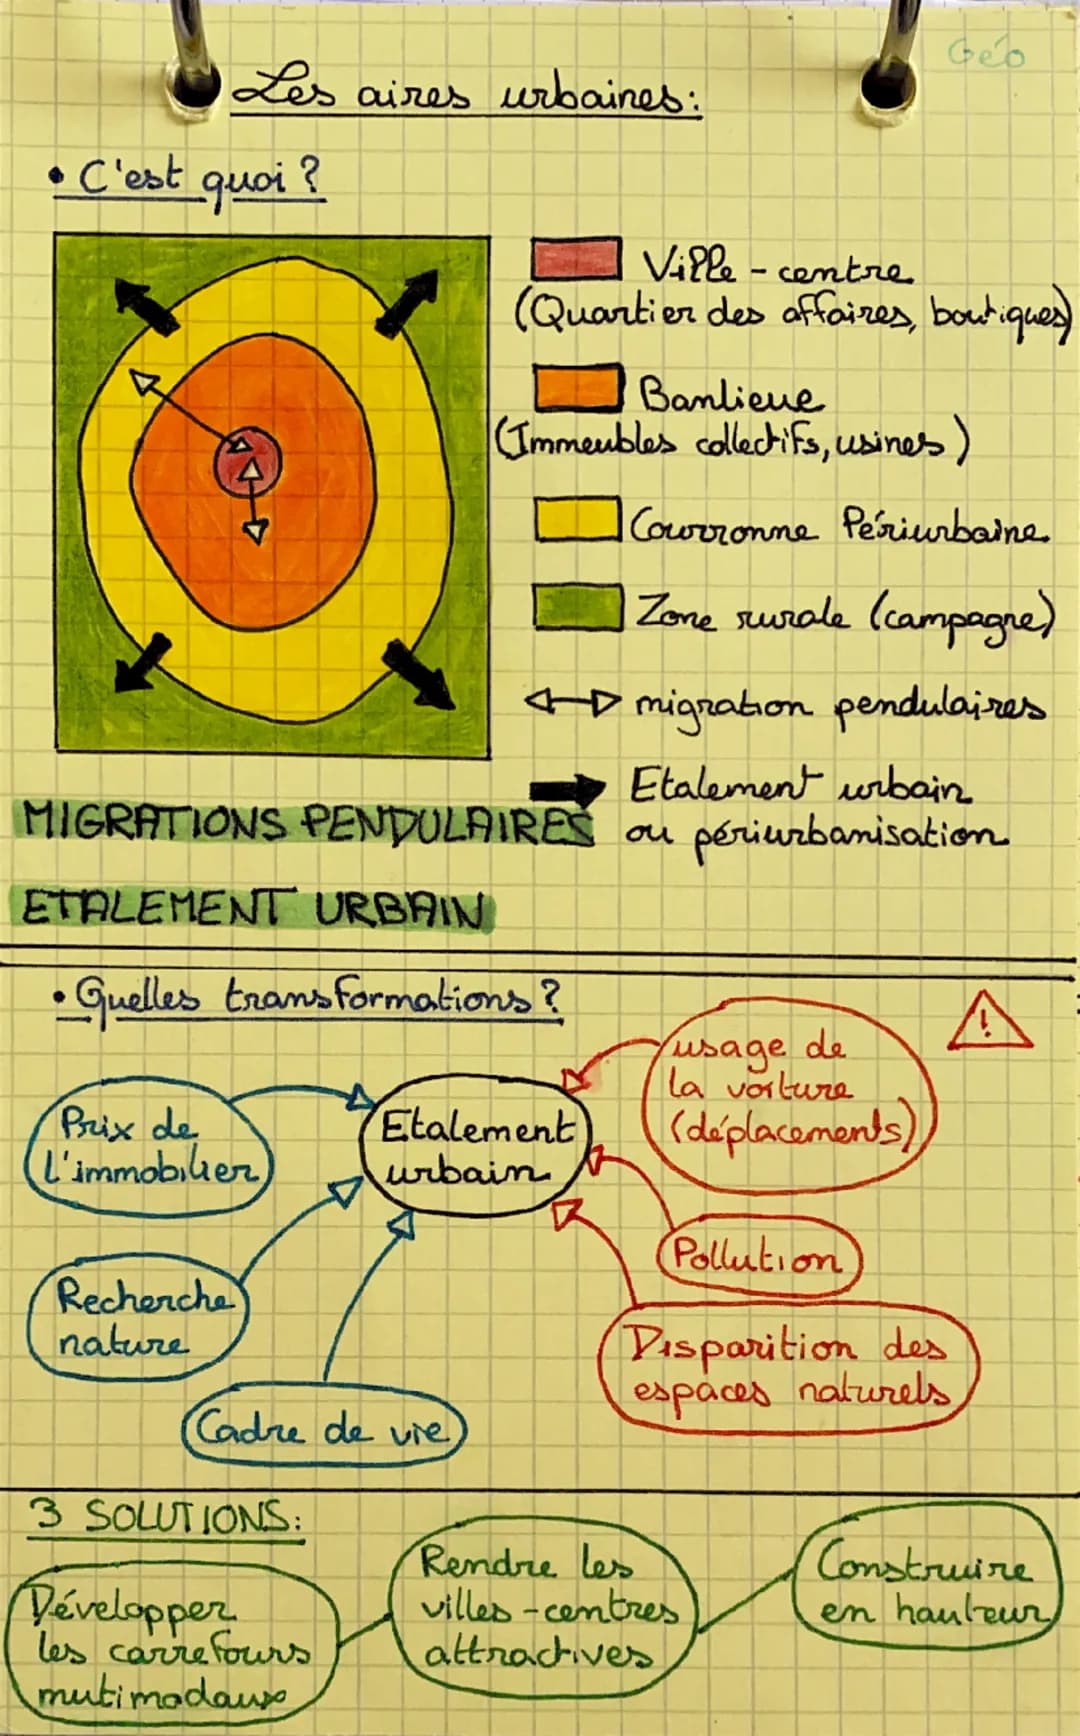 Géo
Les aires urbaines:
• C'est quoi ?
Ville - centre
(Quartier des affaires, boutiques)
Banlieue
(Immeubles collectifs, usines)
Courronne Périurbaine
Zone rurale (campagne)
migration pendulaires
Etalement urbain
ou périurbanisation
MIGRATIONS PENDULAIRES
ETALEMENT URBAIN
• Quelles transformations ?
!
usage de
la voiture
(déplacements)
Prix de
l'immobilier
Etalement
urbain
Pollution
Recherche
nature
Disparition des
espaces naturels
Cadre de vie
3 SOLUTIONS:
Développer
les carrefours
mutimodaux
Rendre les
villes-centres
attractives
Construire
en hauteur